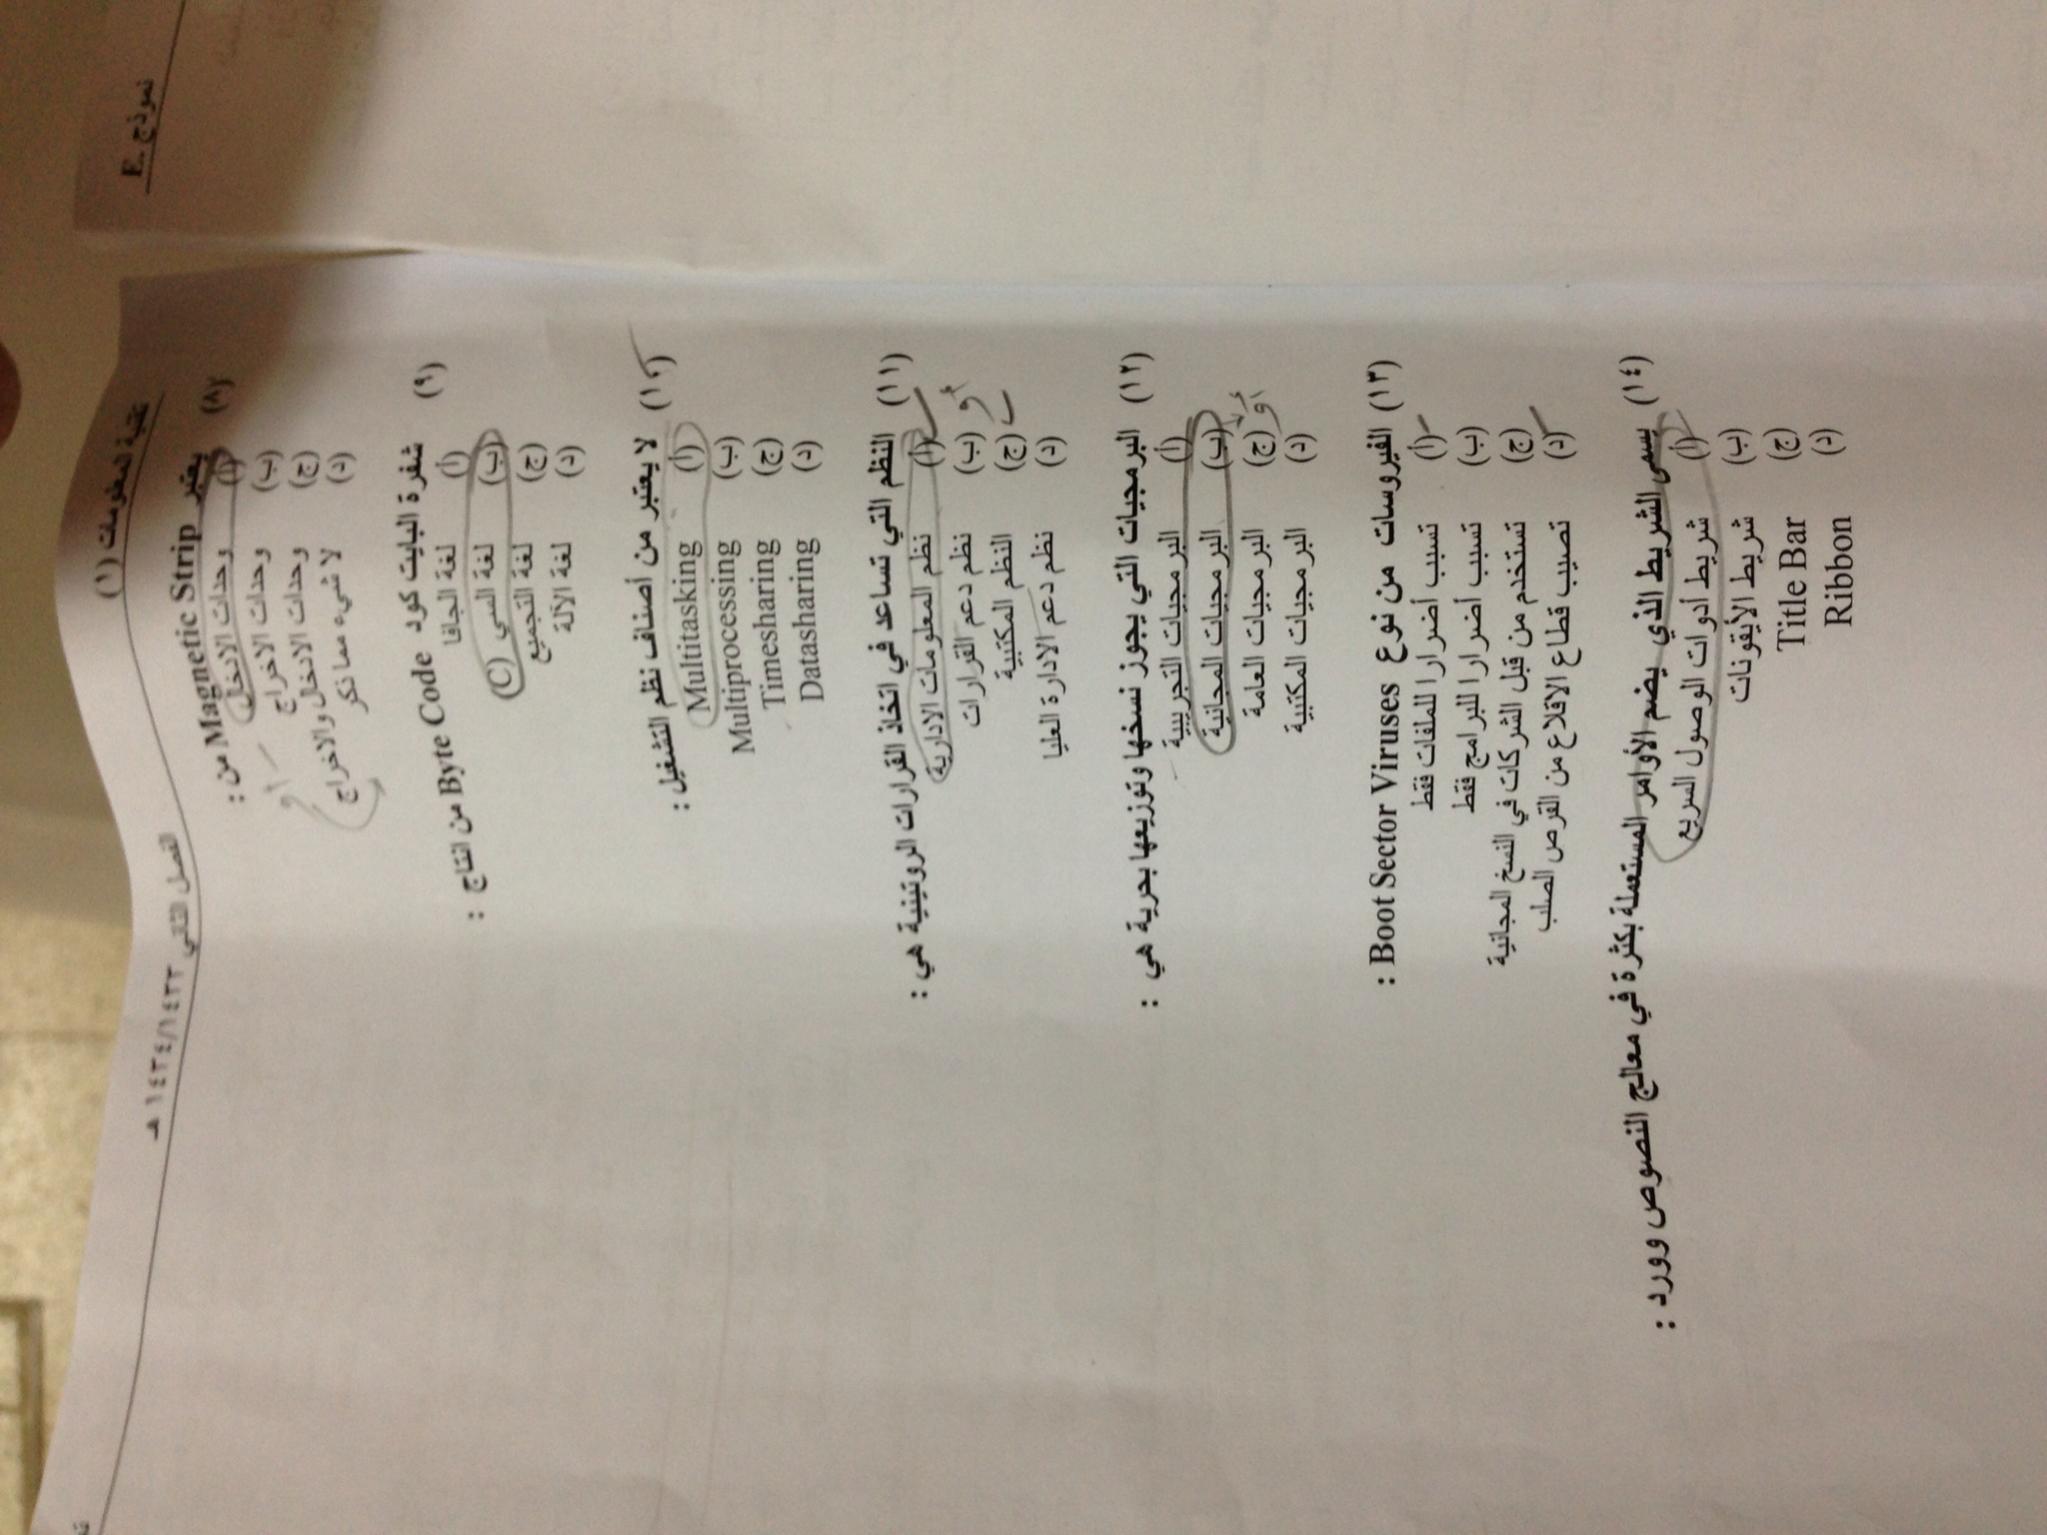 نموذج .E
تقنية المعلومات (١) الفصل الثاني ١٤٣٤/١٤٣٣ هـ
(٨) يعتبر Magnetic Strip من :
(أ) وحدات الادخال
(ب) وحدات الاخراج
(ج) وحدات الادخال والاخراج
(د) لا شيء مما ذكر
أو
(٩) شفرة البايت كود Byte Code من انتاج :
(أ) لغة الجافا
(ب) لغة السي (C)
(ج) لغة التجميع
(د) لغة الآلة
(١٠) لا يعتبر من أصناف نظم التشغيل :
(أ) Multitasking
(ب) Multiprocessing
(ج) Timesharing
(د) Datasharing
(١١) النظم التي تساعد في اتخاذ القرارات الروتينية هي :
(أ) نظم المعلومات الادارية
(ب) نظم دعم القرارات
(ج) النظم المكتبية
(د) نظم دعم الادارة العليا
أو
(١٢) البرمجيات التي يجوز نسخها وتوزيعها بحرية هي :
(أ) البرمجيات التجريبية
(ب) البرمجيات المجانية
(ج) البرمجيات العامة
(د) البرمجيات المكتبية
(١٣) الفيروسات من نوع Boot Sector Viruses :
(أ) تسبب أضرارا للملفات فقط
(ب) تسبب أضرارا للبرامج فقط
(ج) تستخدم من قبل الشركات في النسخ المجانية
(د) تصيب قطاع الاقلاع من القرص الصلب
(١٤) يسمى الشريط الذي يضم الأوامر المستعملة بكثرة في معالج النصوص وورد :
(أ) شريط أدوات الوصول السريع
(ب) شريط الأيقونات
(ج) Title Bar
(د) Ribbon